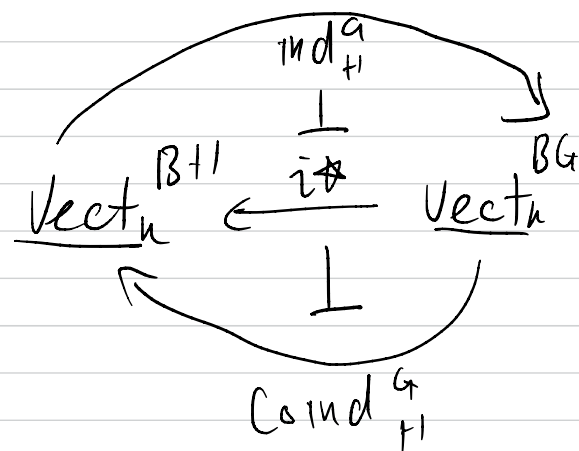 Ind_H^G
⊥
Vect_k^{BH} ← i* Vect_k^{BG}
⊥
Coind_H^G